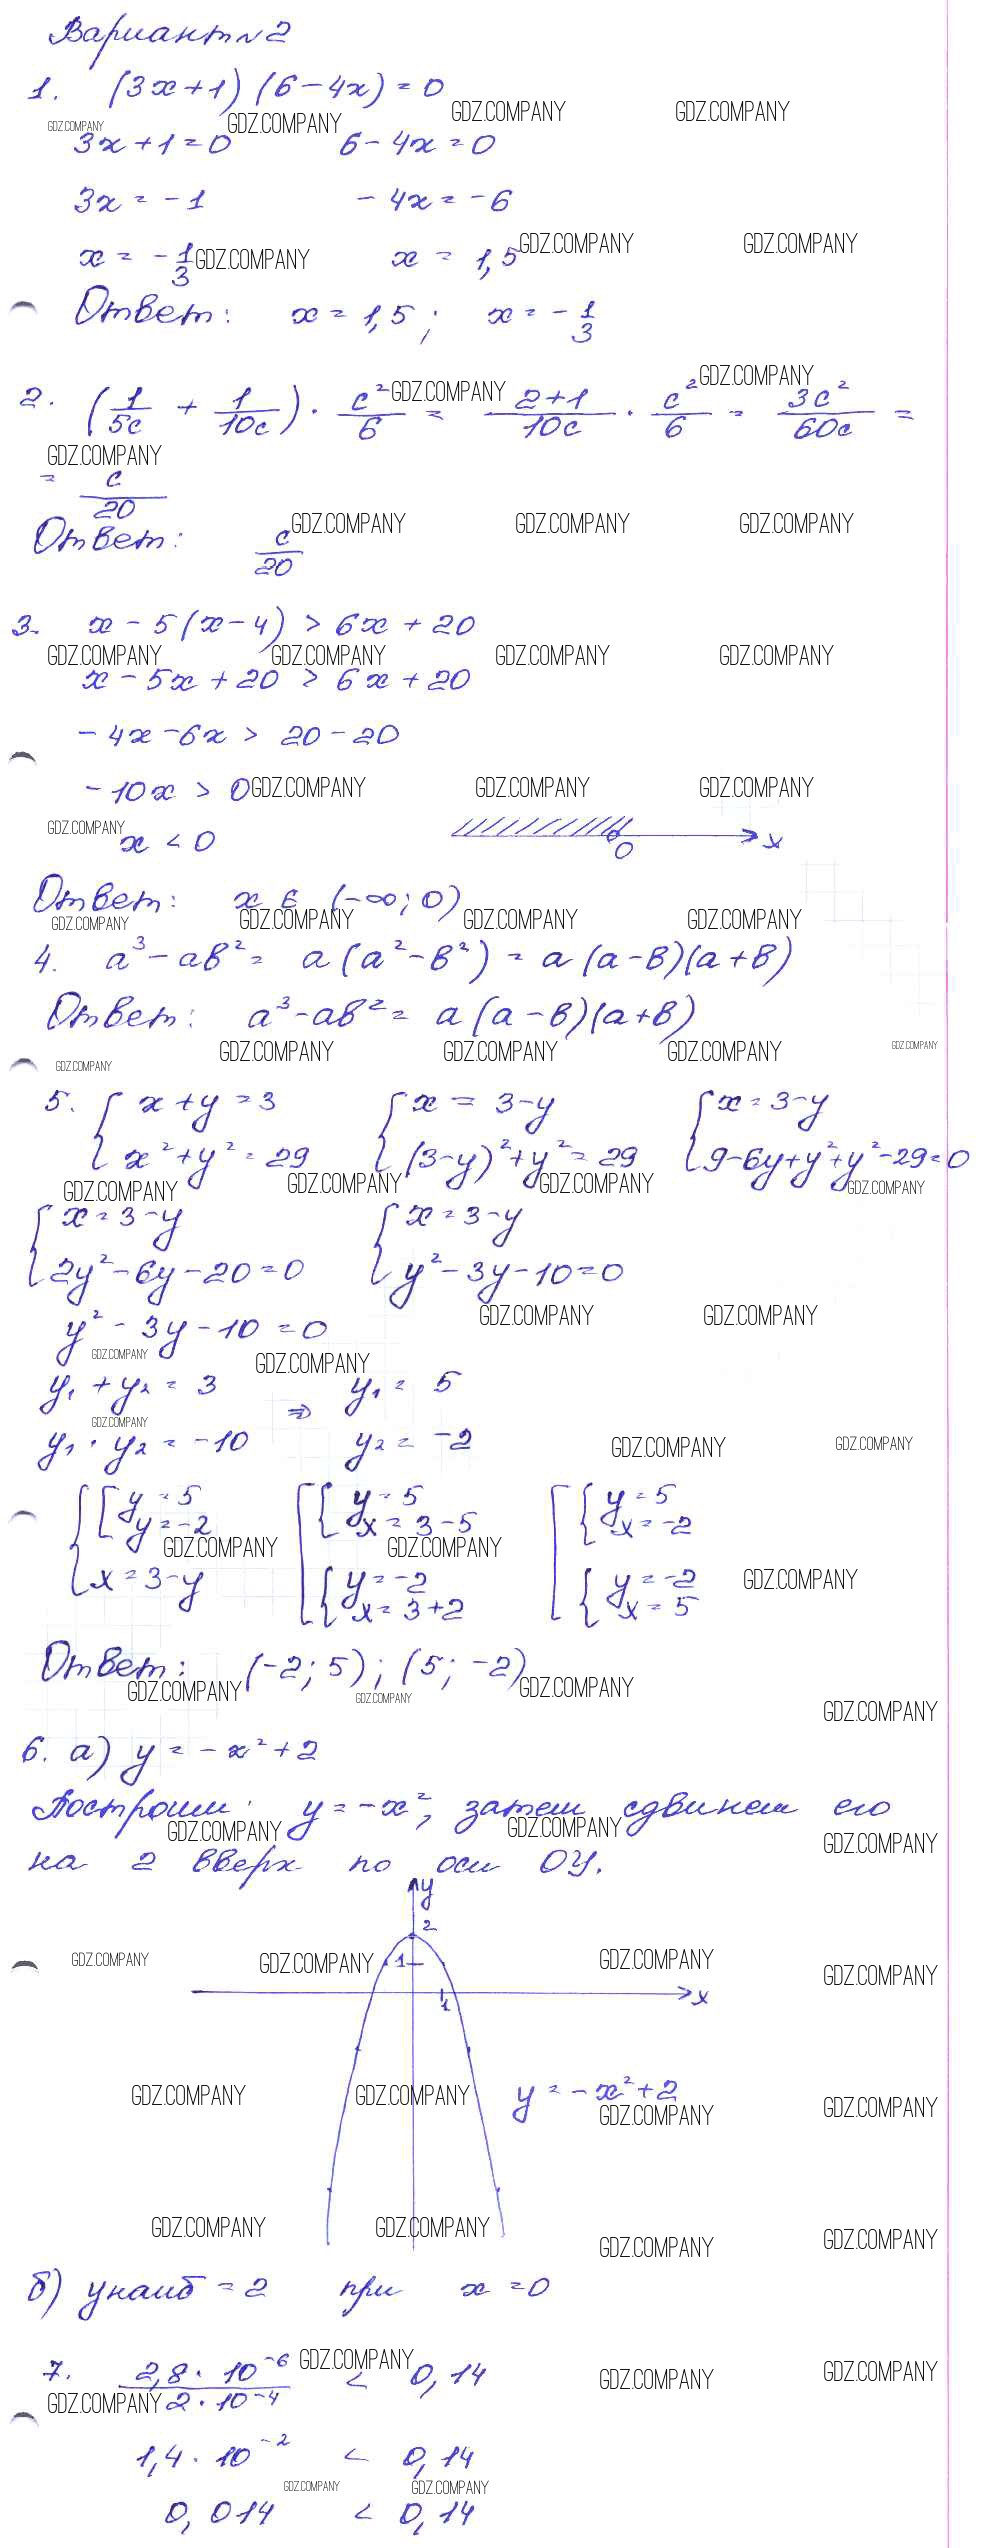 Вариант №2
1. (3x+1)(6-4x)=0
3x+1=0 6-4x=0
3x=-1 -4x=-6
x=-1/3 x=1,5
Ответ: x=1,5; x=-1/3
2. (1/5c + 1/10c) · c²/6 = (2+1)/10c · c²/6 = 3c²/60c =
= c/20
Ответ: c/20
3. x-5(x-4) > 6x+20
x-5x+20 > 6x+20
-4x-6x > 20-20
-10x > 0
x < 0
0 x
Ответ: x ∈ (-∞; 0)
4. a³-ab² = a(a²-b²) = a(a-b)(a+b)
Ответ: a³-ab² = a(a-b)(a+b)
5. { x+y=3 { x=3-y { x=3-y
x²+y²=29 (3-y)²+y²=29 9-6y+y²+y²-29=0
{ x=3-y { x=3-y
2y²-6y-20=0 y²-3y-10=0
y²-3y-10=0
y₁+y₂=3 ⇒ y₁=5
y₁·y₂=-10 y₂=-2
{ [ y=5 [ { y=5 [ { y=5
y=-2 x=3-5 x=-2
x=3-y { y=-2 { y=-2
x=3+2 x=5
Ответ: (-2; 5); (5; -2)
6. а) y=-x²+2
Построим y=-x², затем сдвинем его
на 2 вверх по оси ОУ.
y
2
1
1 x
y=-x²+2
б) yнаиб=2 при x=0
7. 2,8·10⁻⁶/2·10⁻⁴ < 0,14
1,4·10⁻² < 0,14
0,014 < 0,14
GDZ.COMPANY